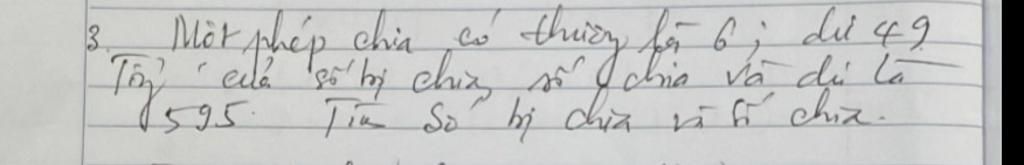 3. Một phép chia có thương là 6; dư 49
Tổng của số bị chia, số chia và dư là
595. Tìm số bị chia và số chia.